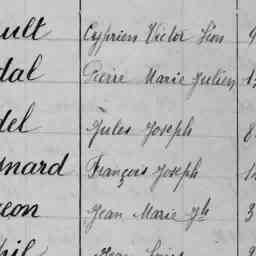 ult Cyprien Victor Léon
dal Pierre Marie Julien 1
del Jules Joseph 8
snard François Joseph 1
eon Jean Marie Jh 3
hil